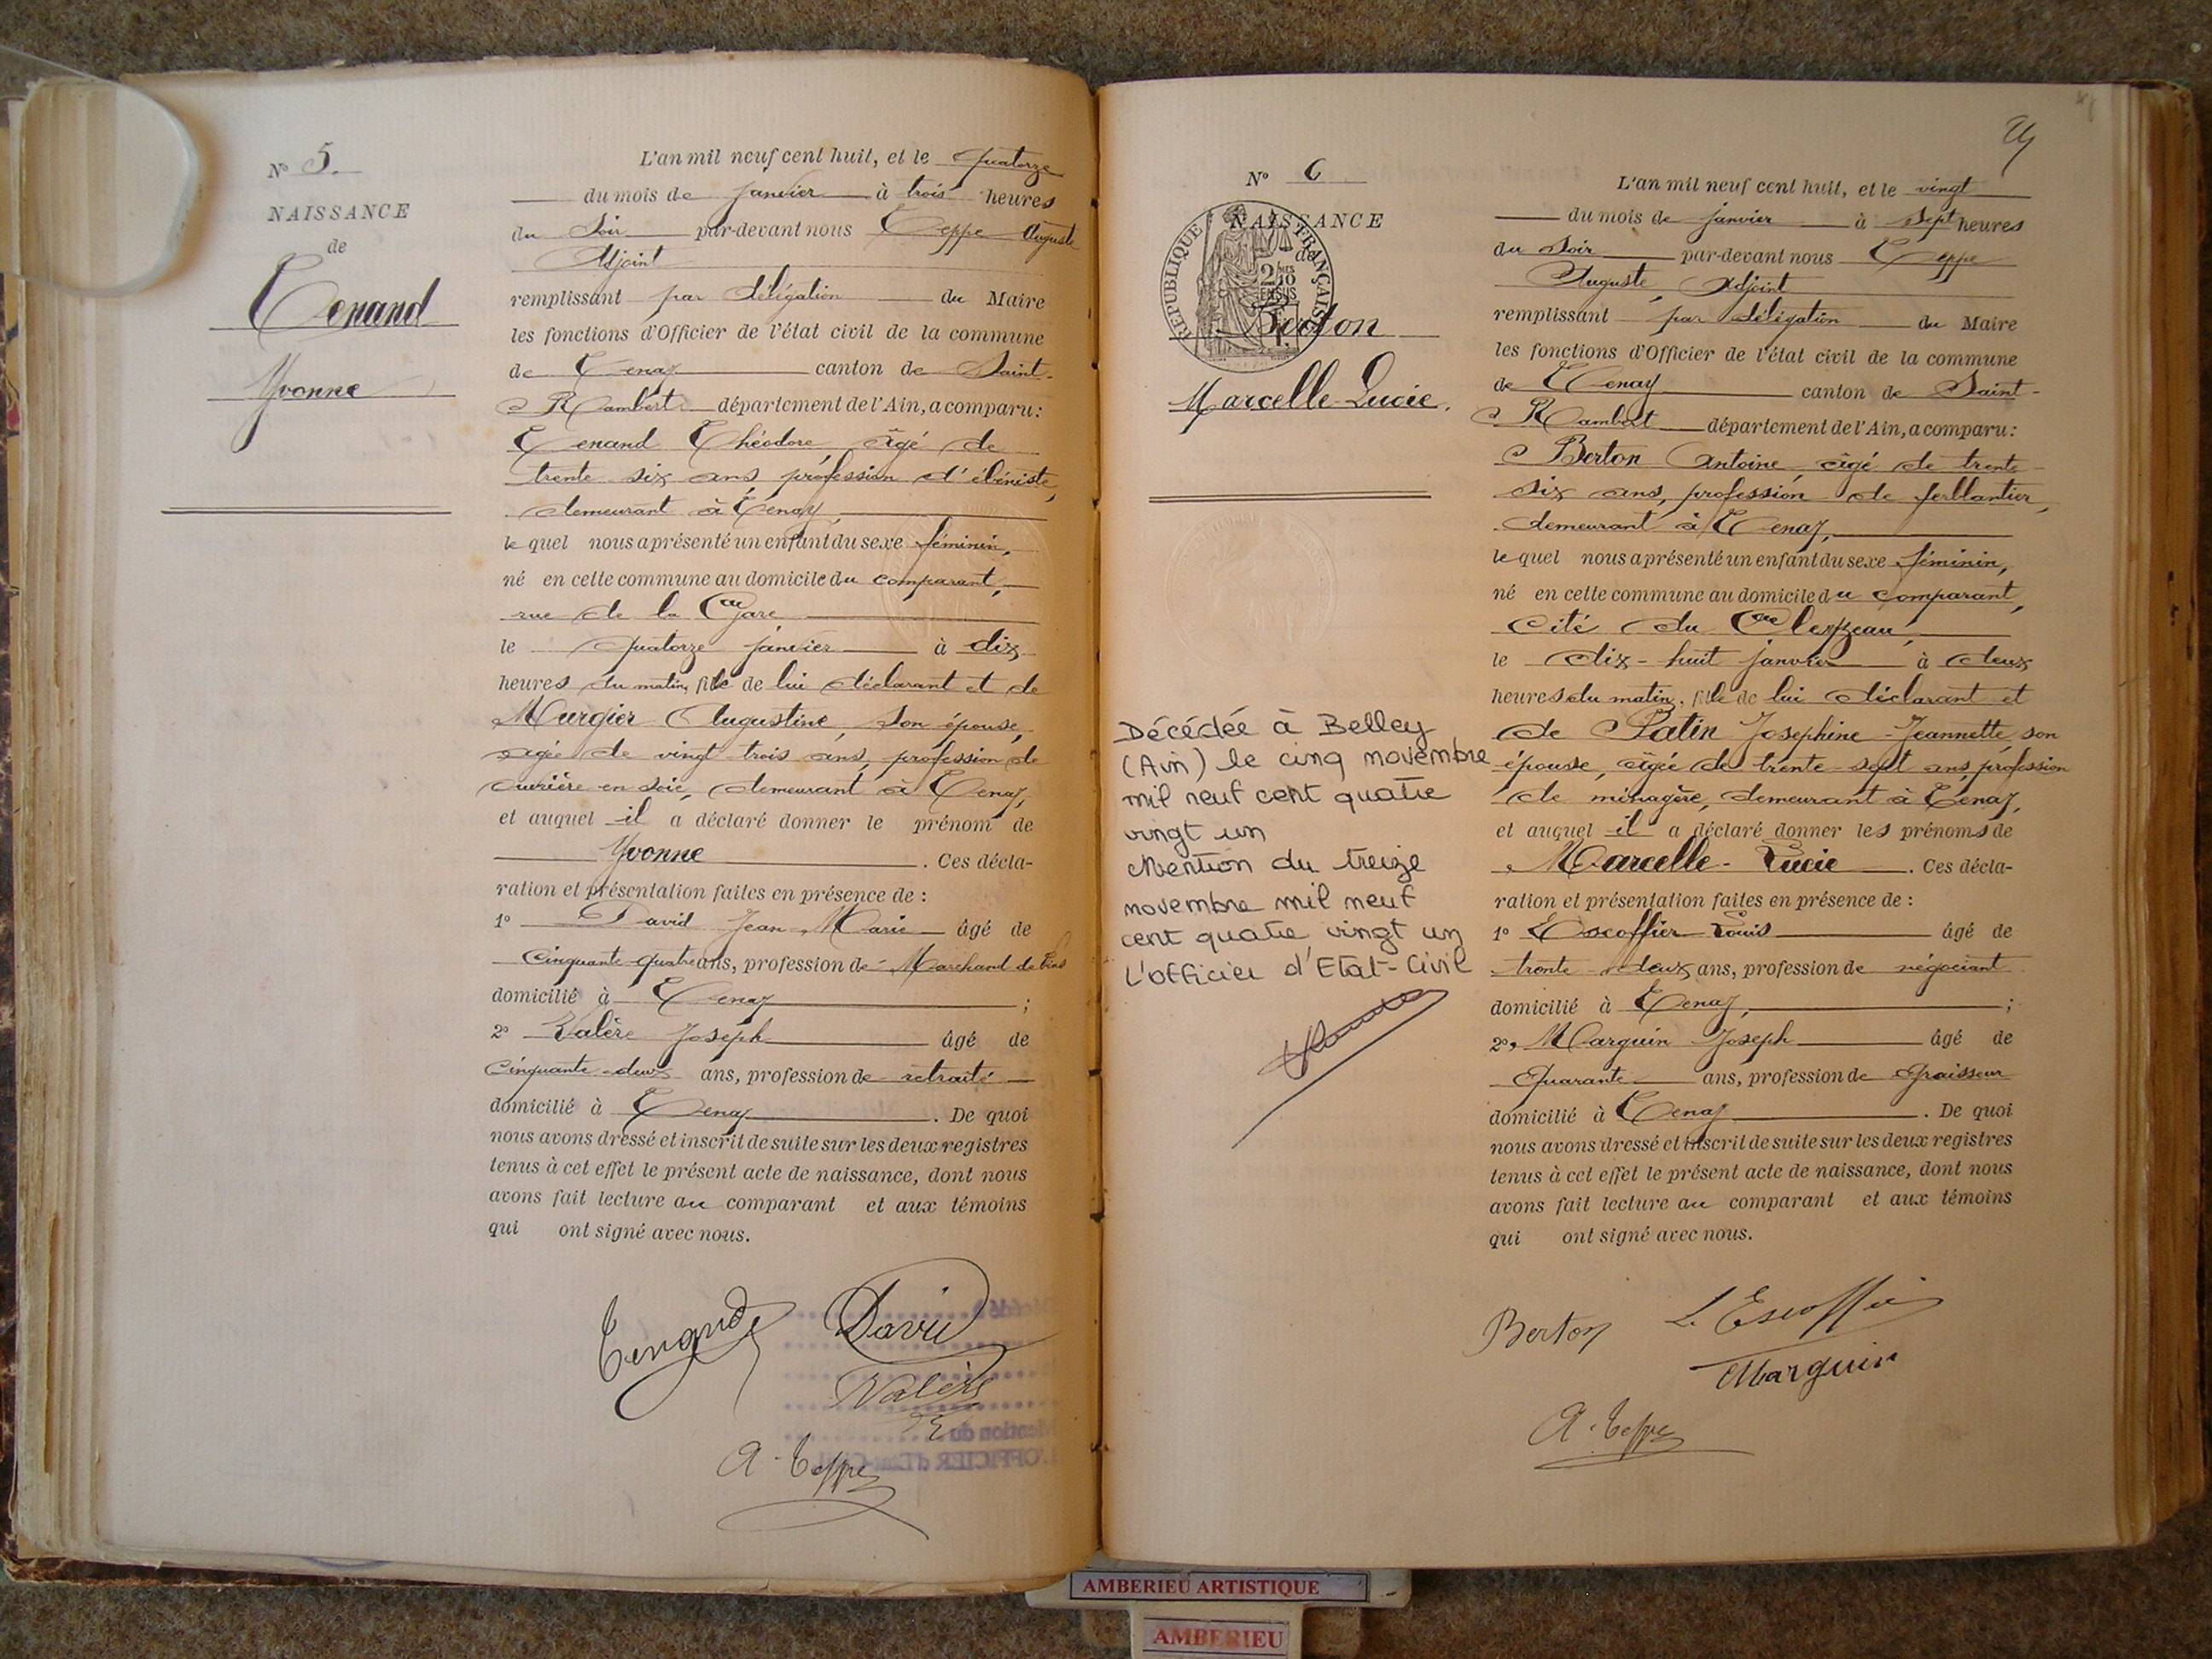 Nº 5.
NAISSANCE
de
Tenand
Yvonne
L'an mil neuf cent huit, et le quatorze
du mois de janvier à trois heures
du soir par-devant nous Teppe Auguste
Adjoint
remplissant par délégation du Maire
les fonctions d'Officier de l'état civil de la commune
de Tenay canton de Saint-
Rambert département de l'Ain, a comparu:
Tenand Théodore, âgé de
trente six ans, profession d'ébéniste,
demeurant à Tenay,
lequel nous a présenté un enfant du sexe féminin,
né en cette commune au domicile du comparant,
rue de la Gare
le quatorze janvier à dix
heures du matin, fille de lui déclarant et de
Murgier Augustine, son épouse,
agée de vingt trois ans, profession de
ouvrière en soie, demeurant à Tenay,
et auquel il a déclaré donner le prénom de
Yvonne. Ces décla-
ration et présentation faites en présence de :
1º David Jean Marie âgé de
cinquante quatre ans, profession de Marchand de
domicilié à Tenay ;
2º Valère Joseph âgé de
cinquante-deux ans, profession de retraité
domicilié à Tenay. De quoi
nous avons dressé et inscrit de suite sur les deux registres
tenus à cet effet le présent acte de naissance, dont nous
avons fait lecture au comparant et aux témoins
qui ont signé avec nous.
Tenand David
Valère
A. Teppe
Nº 6
NAISSANCE
de
RÉPUBLIQUE FRANÇAISE
2/10
EN SUS
Berton
Marcelle-Lucie.
Décédée à Belley
(Ain) le cinq novembre
mil neuf cent quatre
vingt un
Mention du treize
novembre mil neuf
cent quatre vingt un
L'officier d'Etat-Civil
L'an mil neuf cent huit, et le vingt
du mois de janvier à sept heures
du soir par-devant nous Teppe
Auguste, Adjoint
remplissant par délégation du Maire
les fonctions d'Officier de l'état civil de la commune
de Tenay canton de Saint-
Rambert département de l'Ain, a comparu:
Berton Antoine, âgé de trente-
six ans, profession de ferblantier,
demeurant à Tenay,
lequel nous a présenté un enfant du sexe féminin,
né en cette commune au domicile du comparant,
Cité du
le dix-huit janvier à deux
heures du matin, fille de lui déclarant et
de Patin Josephine-Jeannette, son
épouse, âgée de trente-sept ans, profession
de ménagère, demeurant à Tenay,
et auquel il a déclaré donner les prénoms de
Marcelle-Lucie. Ces décla-
ration et présentation faites en présence de :
1º Escoffier Louis âgé de
trente-deux ans, profession de négociant
domicilié à Tenay, ;
2º, Marguin Joseph âgé de
quarante ans, profession de graisseur
domicilié à Tenay. De quoi
nous avons dressé et inscrit de suite sur les deux registres
tenus à cet effet le présent acte de naissance, dont nous
avons fait lecture au comparant et aux témoins
qui ont signé avec nous.
Berton L. Escoffier
Marguin
A. Teppe
AMBERIEU ARTISTIQUE
AMBERIEU